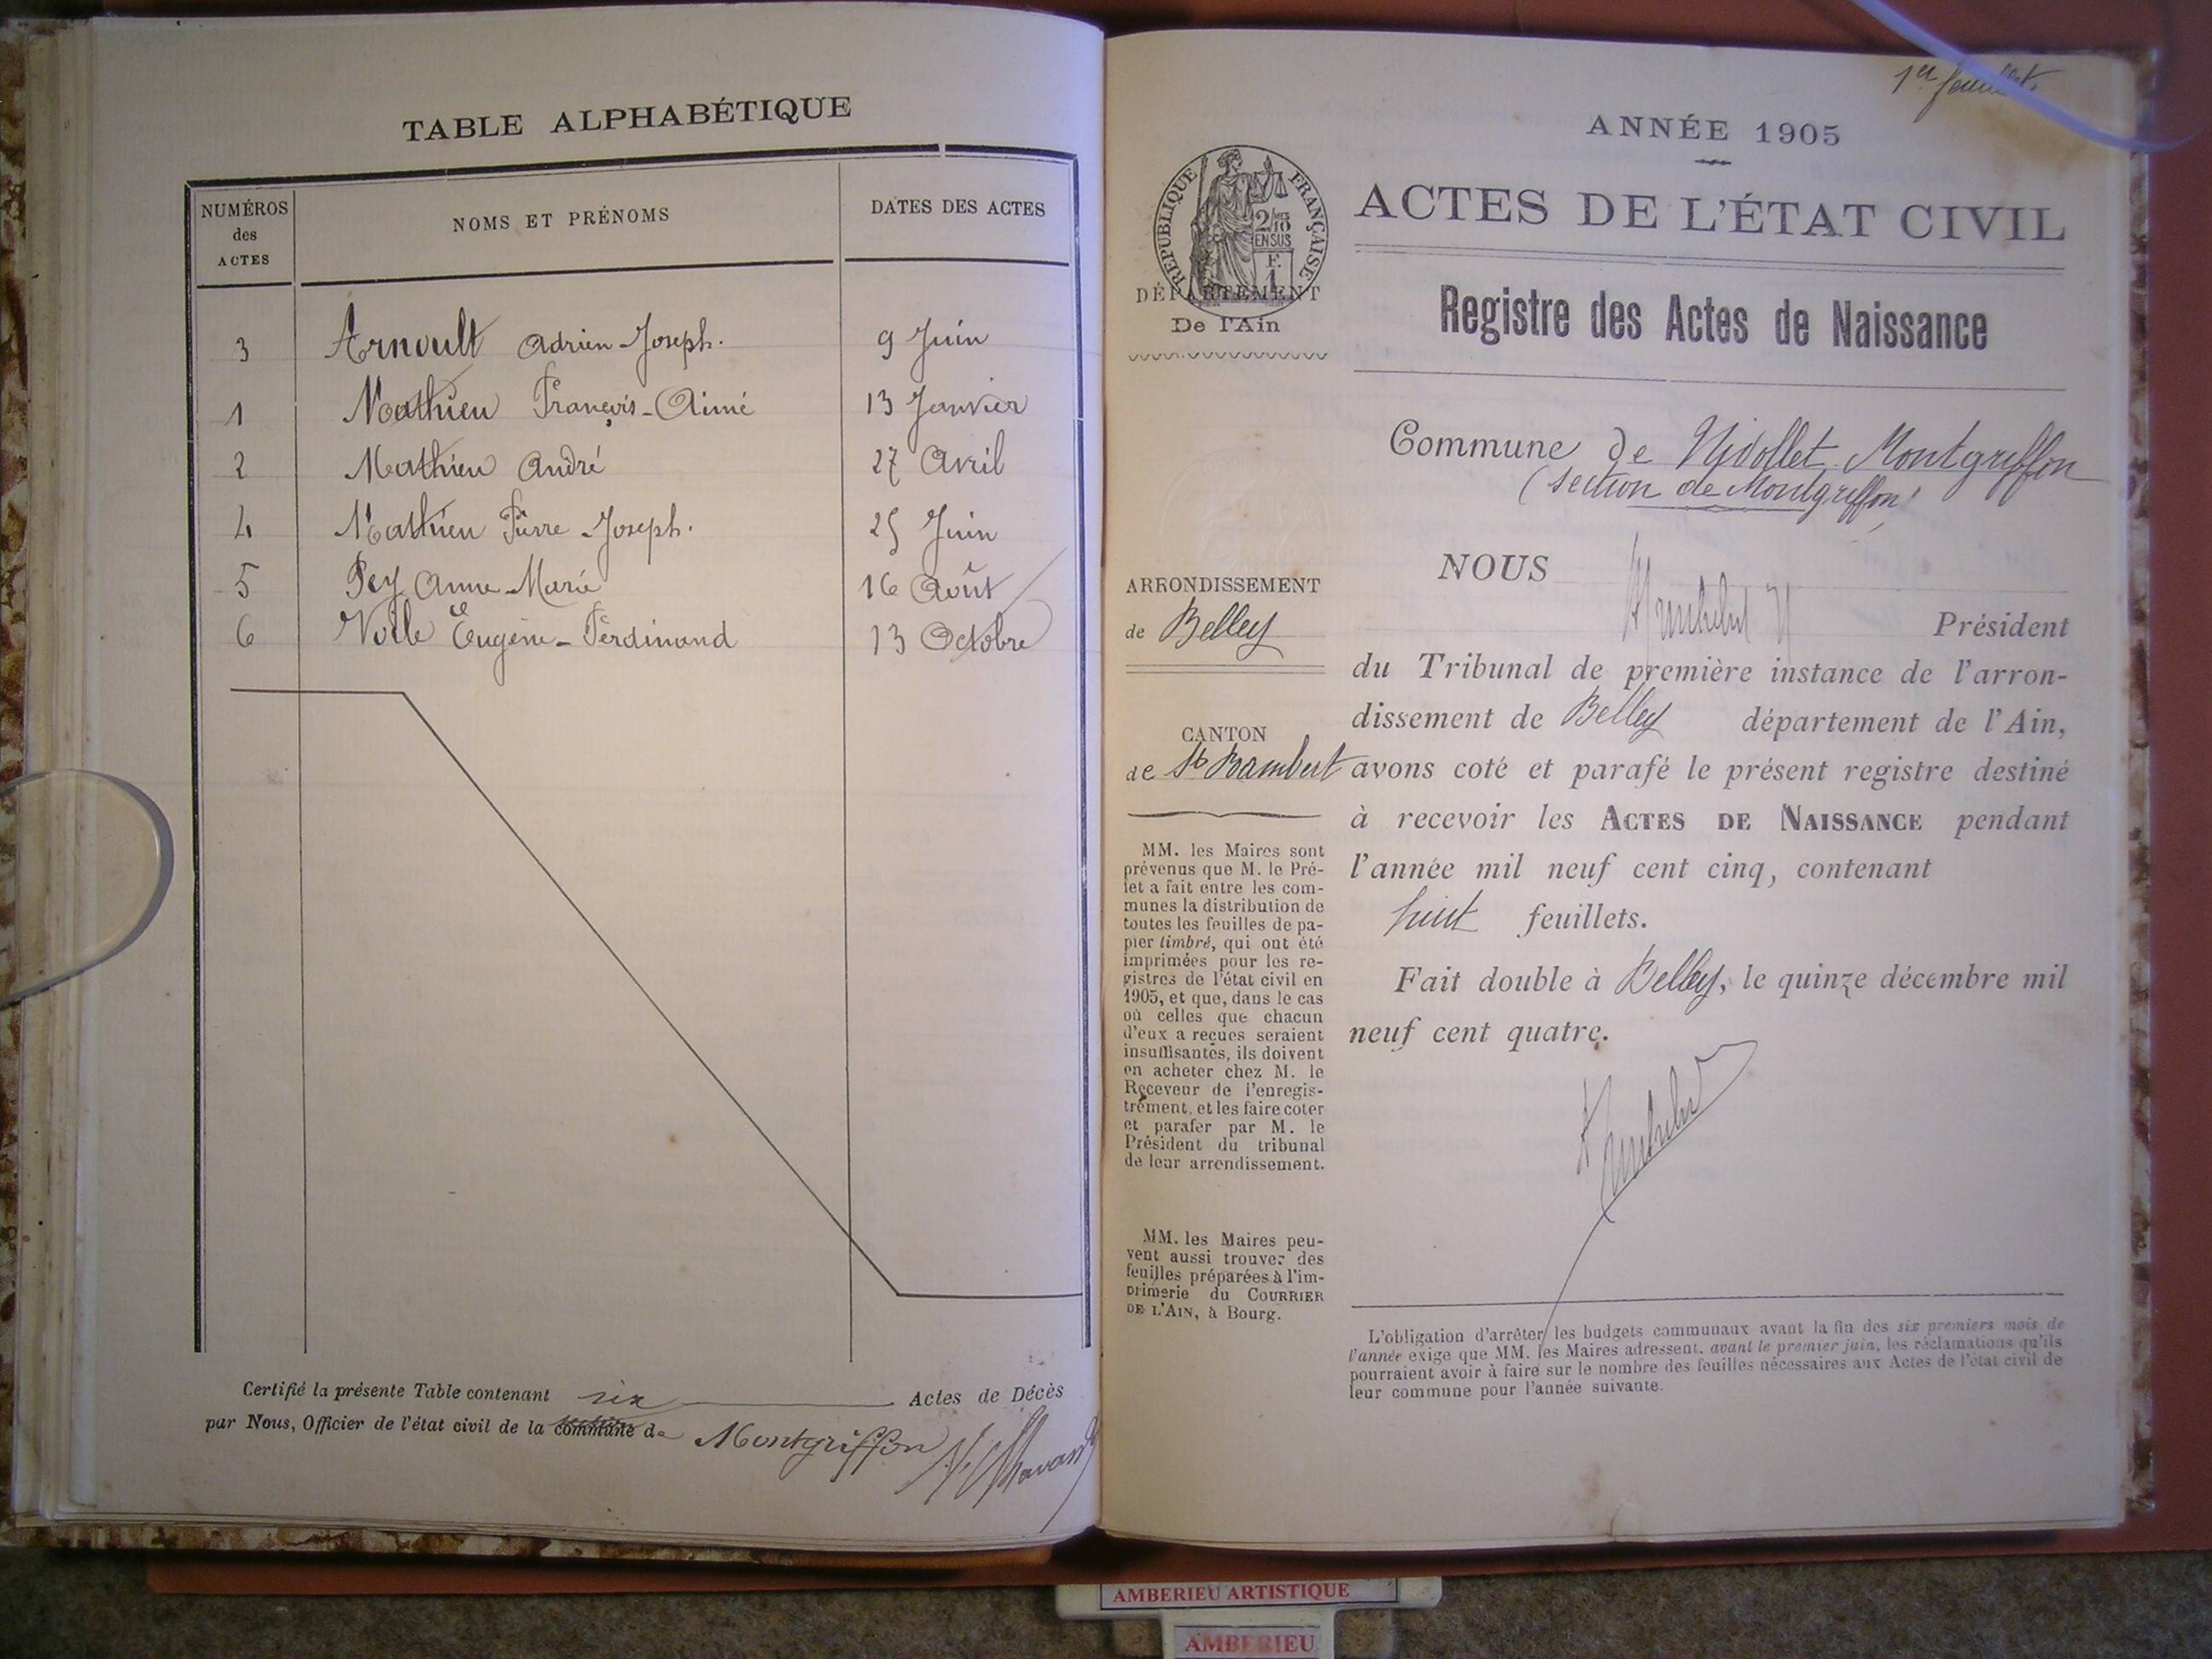 TABLE ALPHABÉTIQUE
NUMÉROS des ACTES
NOMS ET PRÉNOMS
DATES DES ACTES
3 Arnoult Adrien-Joseph. 9 Juin
1 Mathieu François-Aimé 13 Janvier
2 Mathieu André 27 Avril
4 Mathieu Pierre-Joseph. 25 Juin
5 Pey Anne-Marie 16 Août
6 Voile Eugène-Ferdinand 13 Octobre
Certifié la présente Table contenant six Actes de Décès
par Nous, Officier de l'état civil de la commune de Montgriffon
1er feuillet.
ANNÉE 1905
ACTES DE L'ÉTAT CIVIL
Registre des Actes de Naissance
RÉPUBLIQUE FRANÇAISE
2/10
EN SUS
F.
1
DÉPARTEMENT
De l'Ain
Commune de Nivollet Montgriffon
(section de Montgriffon)
ARRONDISSEMENT
de Belley
CANTON
de St Rambert
MM. les Maires sont
prévenus que M. le Pré-
fet a fait entre les com-
munes la distribution de
toutes les feuilles de pa-
pier timbré, qui ont été
imprimées pour les re-
gistres de l'état civil en
1905, et que, dans le cas
où celles que chacun
d'eux a reçues seraient
insuffisantes, ils doivent
en acheter chez M. le
Receveur de l'enregis-
trement, et les faire coter
et parafer par M. le
Président du tribunal
de leur arrondissement.
MM. les Maires peu-
vent aussi trouver des
feuilles préparées à l'im-
primerie du COURRIER
DE L'AIN, à Bourg.
NOUS
Président
du Tribunal de première instance de l'arron-
dissement de Belley département de l'Ain,
avons coté et parafé le présent registre destiné
à recevoir les ACTES DE NAISSANCE pendant
l'année mil neuf cent cinq, contenant
huit feuillets.
Fait double à Belley, le quinze décembre mil
neuf cent quatre.
L'obligation d'arrêter les budgets communaux avant la fin des six premiers mois de
l'année exige que MM. les Maires adressent, avant le premier juin, les réclamations qu'ils
pourraient avoir à faire sur le nombre des feuilles nécessaires aux Actes de l'état civil de
leur commune pour l'année suivante.
AMBERIEU ARTISTIQUE
AMBERIEU